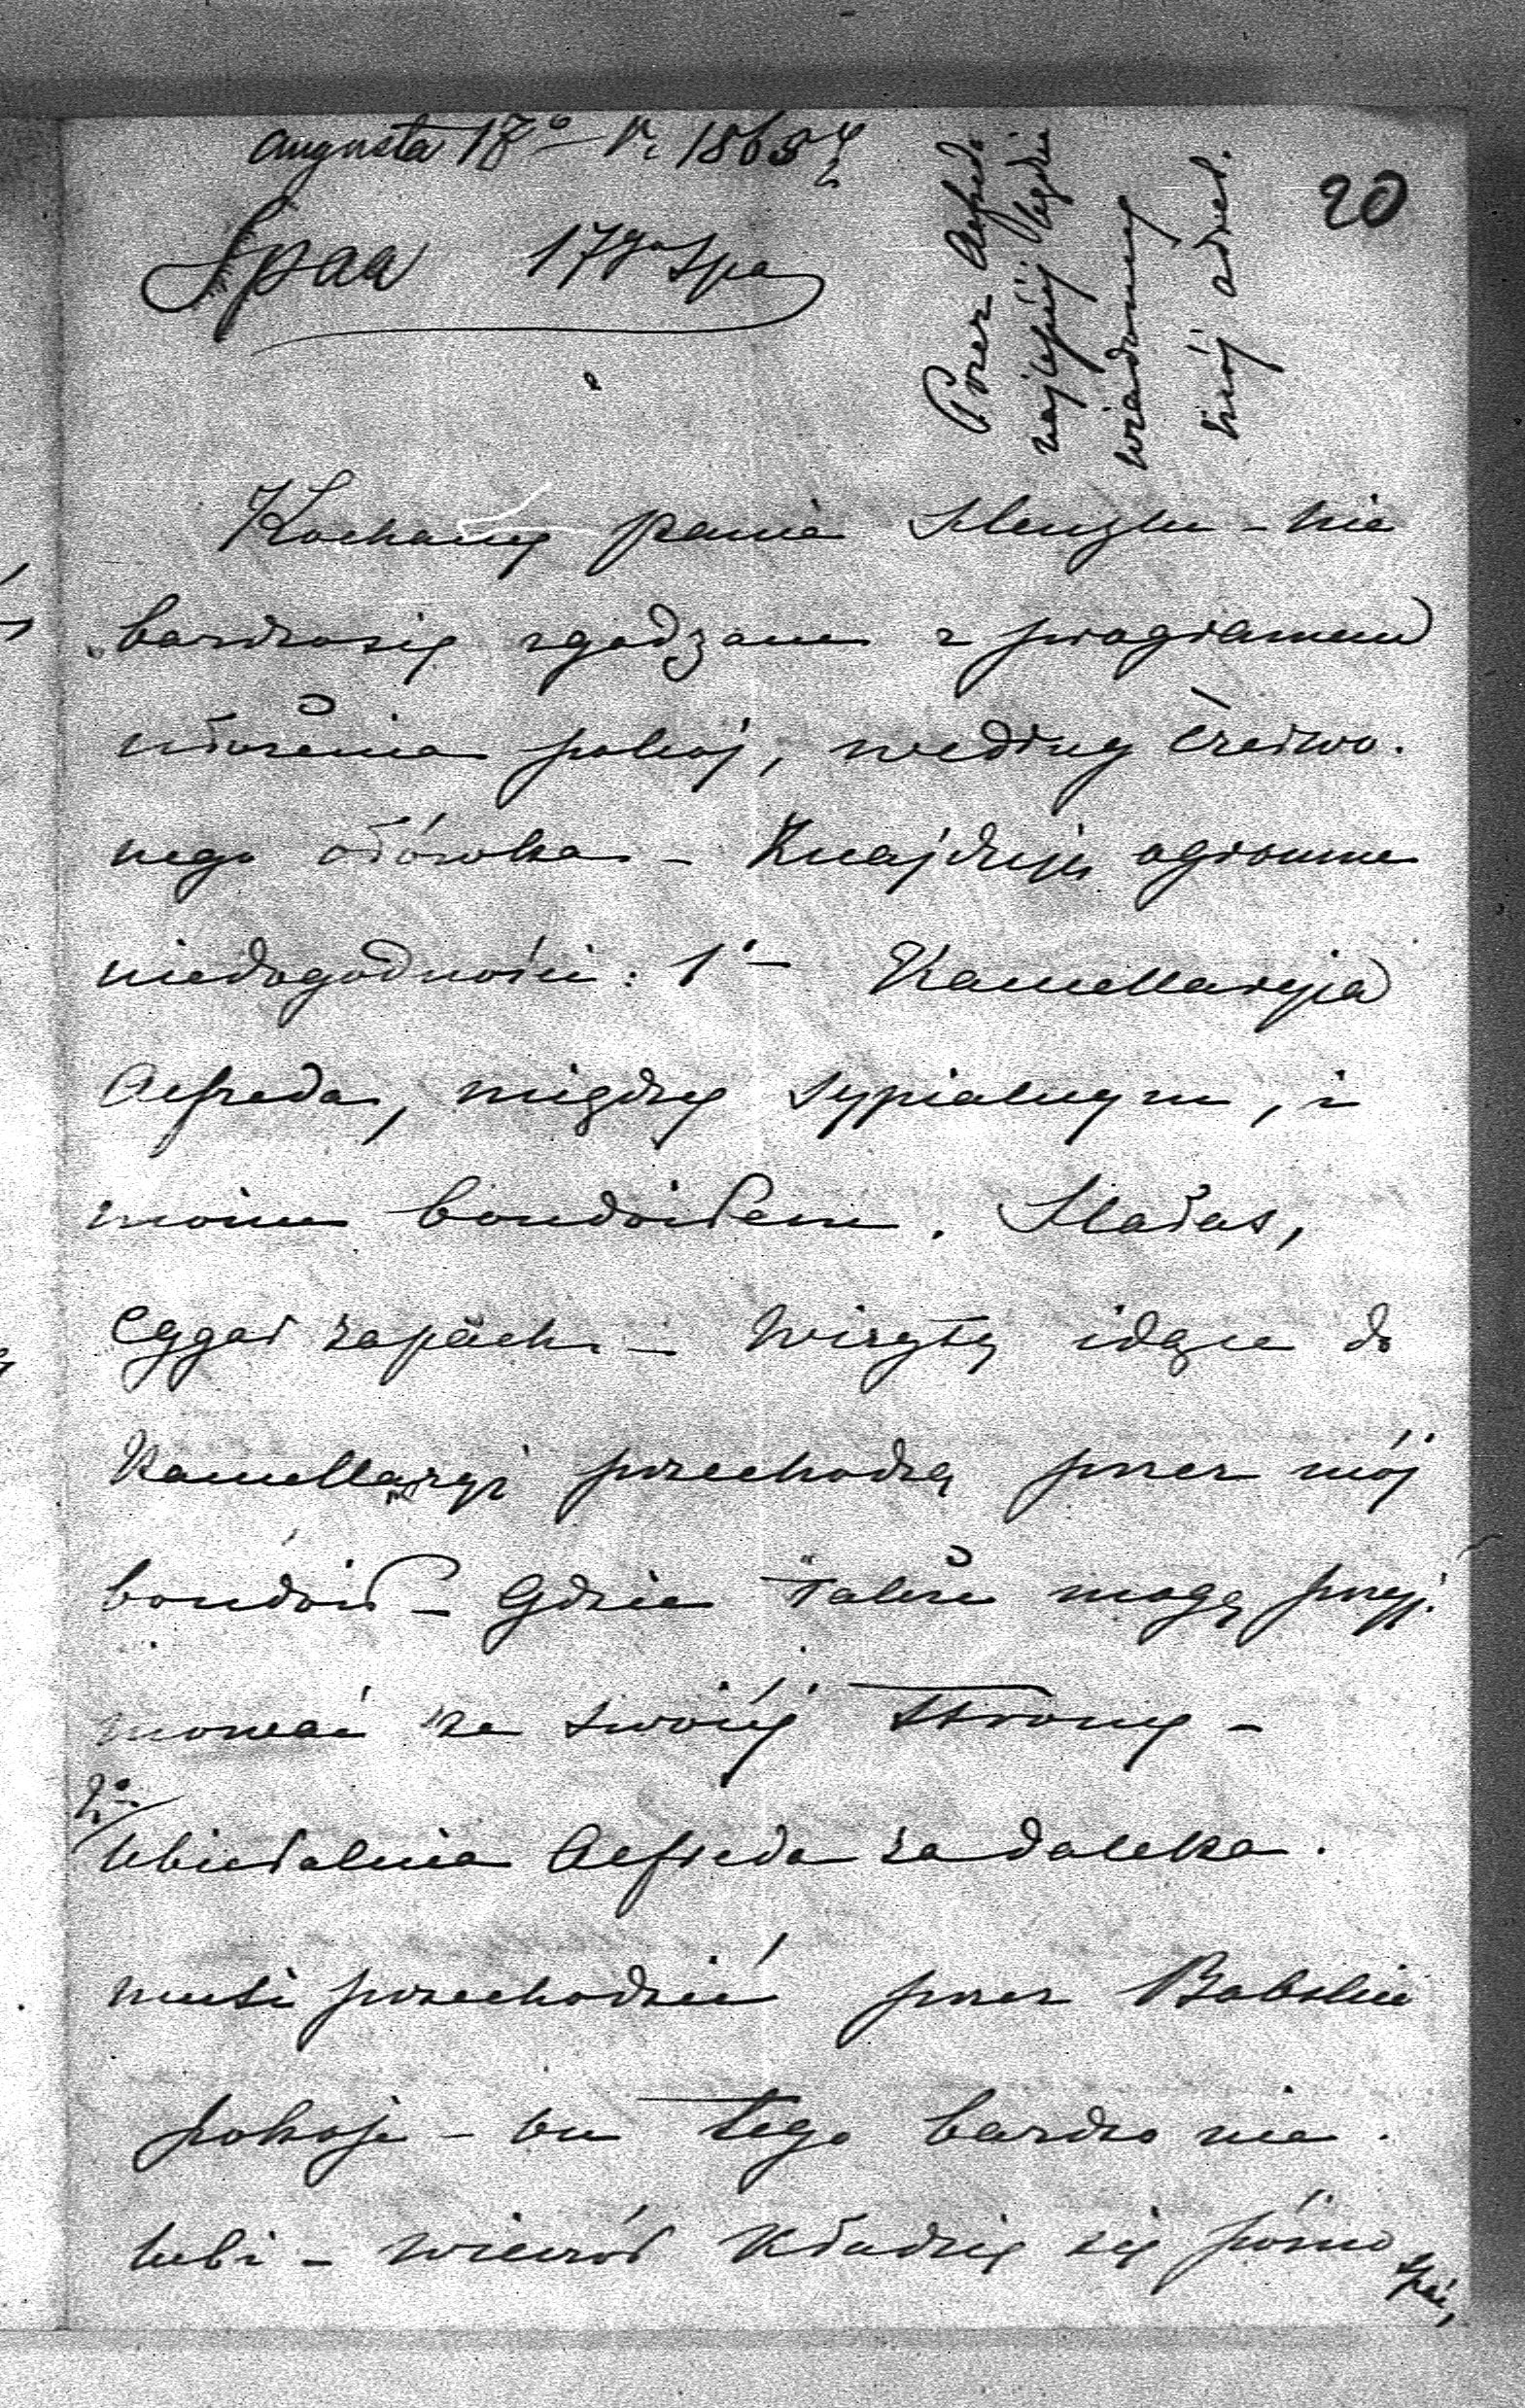 Augusta 17° 1865
20
Spaa 17go Spa
Przez Alfreda
najlepiéj będzie
wiadomy
mój adres.
Kochany panie nie
bardzosię zgadzam z programem
ułożenia pokoj, według czerwo.
nego ołówka - Znajduję ogromne
niedogodności: 1° - Kancellaryja
Alfreda, między sypialnym, i
moim boudoirem. Hałas,
Cygar zapach - Wizyty idące do
Kancellaryi przechodzą przez mój
boudoir - Gdzie także mogę przyj.
mować ze swoiéj strony -
2° Ubieralnia Alfreda za daleka.
musi przechodzić przez Babskie
pokoje - on tego bardzo nie
lubi - wieczór kładzie się późno
spać,